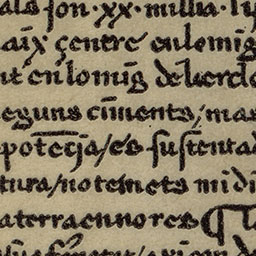 als son ·xx· millia· l
aix çentre en lo mig
nt en lo mig de la erclo
eguns ciments / mas
potēcja / es sustentad
tura / no temets midi
a terra en no res ¶ la